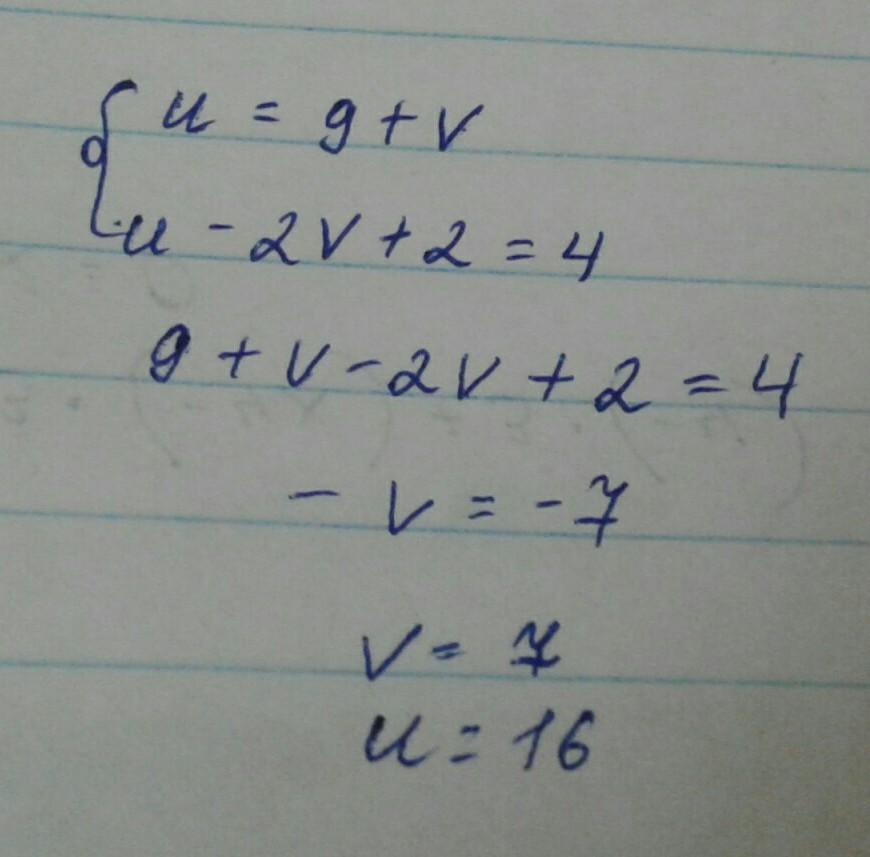 { u = 9 + v
u - 2v + 2 = 4
9 + v - 2v + 2 = 4
- v = -7
v = 7
u = 16